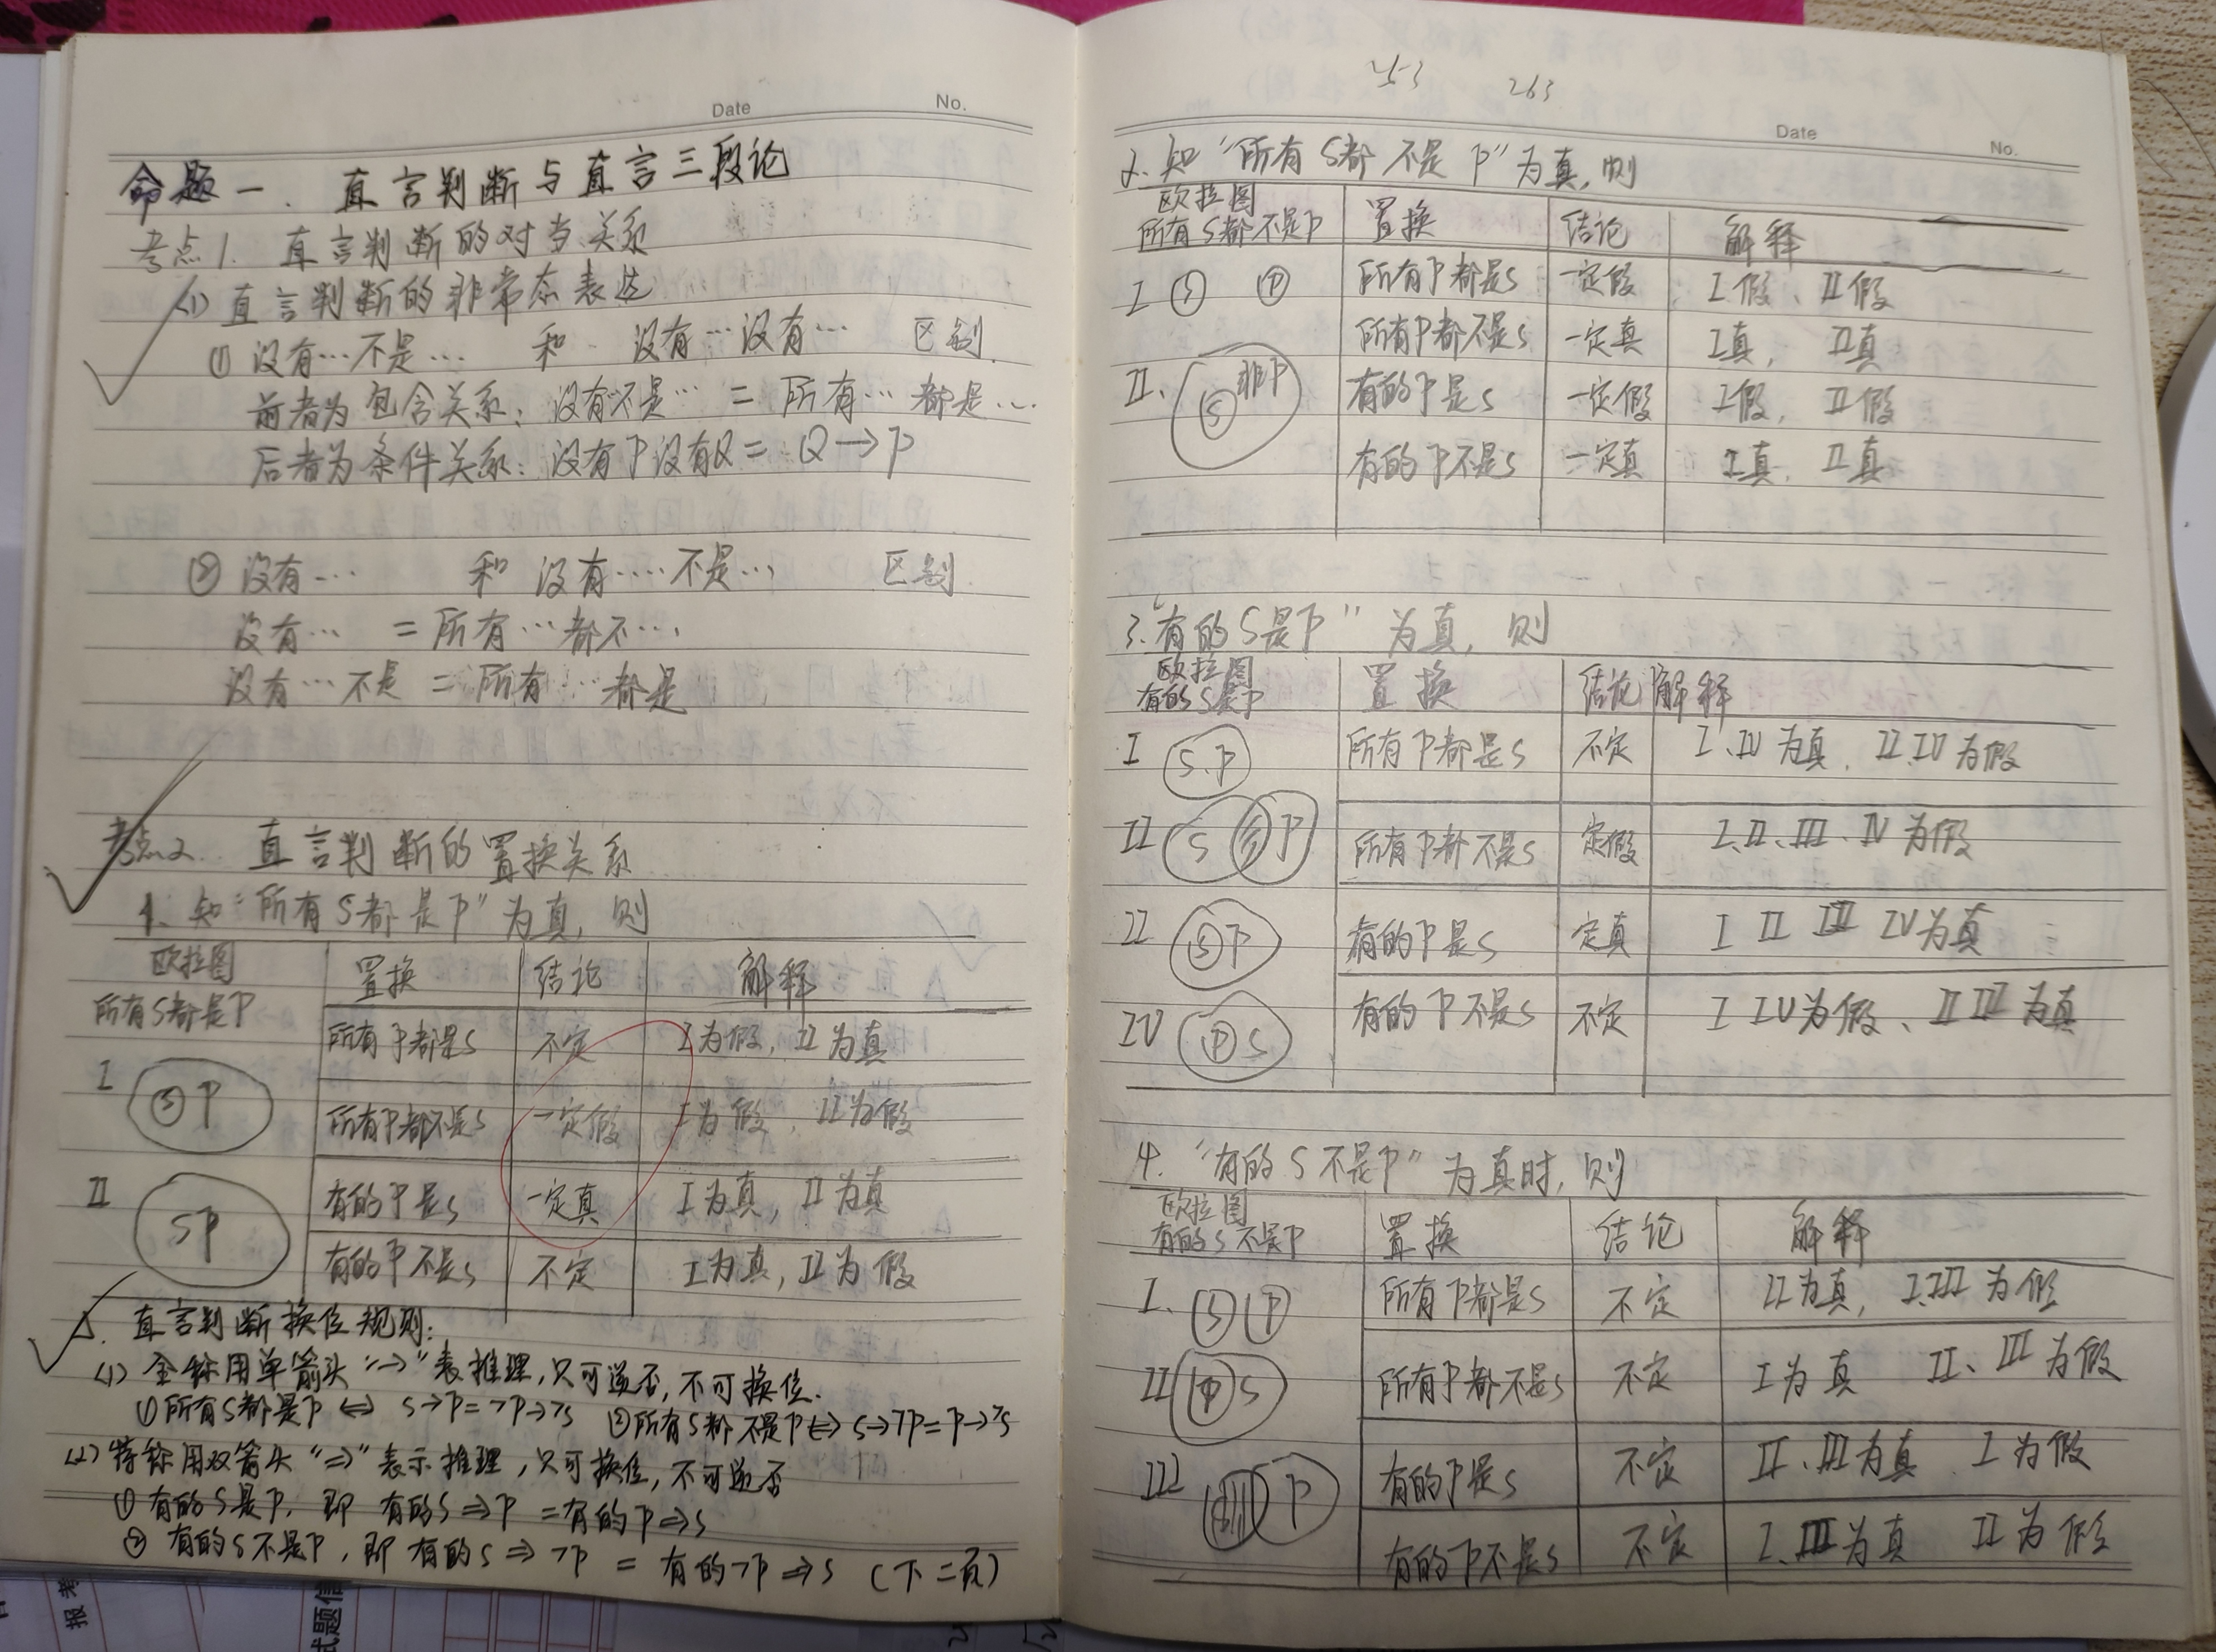 Date No.
命题一. 直言判断与直言三段论
考点1. 直言判断的对当关系
(1) 直言判断的非常态表达
① 没有…不是… 和 没有…没有… 区别.
前者为包含关系: 没有…不是… = 所有…都是…
后者为条件关系: 没有P没有Q = Q→P
② 没有… 和 没有…不是… 区别.
没有… = 所有…都不…
没有…不是 = 所有…都是
考点2. 直言判断的置换关系
1. 知“所有S都是P”为真, 则
欧拉图 置换 结论 解释
所有S都是P
所有P都是S 不定 I为假, II为真
I S P
所有P都不是S 一定假 I为假, II为假
II SP
有的P是S 一定真 I为真, II为真
有的P不是S 不定 I为真, II为假
△. 直言判断换位规则:
(1) 全称用单箭头“→”表推理, 只可逆否, 不可换位.
①所有S都是P ⇔ S→P=¬P→¬S ②所有S都不是P⇔S→¬P=P→¬S
(2) 特称用双箭头“⇒”表示推理, 只可换位, 不可逆否
① 有的S是P, 即 有的S⇒P = 有的P⇒S
② 有的S不是P, 即 有的S⇒¬P = 有的¬P⇒S (下二页)
263
Date No.
2. 知“所有S都不是P”为真, 则
欧拉图 置换 结论 解释
所有S都不是P
I S P 所有P都是S 一定假 I假、II假
所有P都不是S 一定真 I真, II真
II. S 非P 有的P是S 一定假 I假, II假
有的P不是S 一定真 I真, II真
3.“有的S是P”为真, 则
欧拉图 置换 结论 解释
有的S是P
I S.P 所有P都是S 不定 I、IV为真, II、IV为假
II S P 所有P都不是S 定假 I、II、III、IV为假
II S P 有的P是S 定真 I II III IV为真
IV P S 有的P不是S 不定 I IV为假、II III为真
4. “有的S不是P”为真时, 则
欧拉图 置换 结论 解释
有的S不是P
I. S P 所有P都是S 不定 II为真, I、III为假
II P S 所有P都不是S 不定 I为真 II、III为假
III P 有的P是S 不定 II、III为真 I为假
有的P不是S 不定 I、III为真 II为假